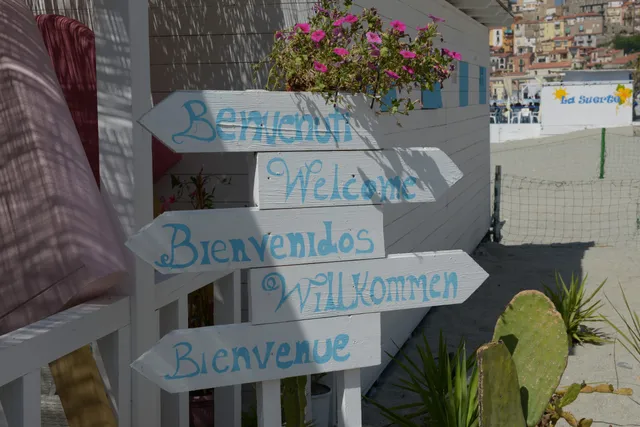 Benvenuti
Welcome
Bienvenidos
Willkommen
Bienvenue
La Suerte